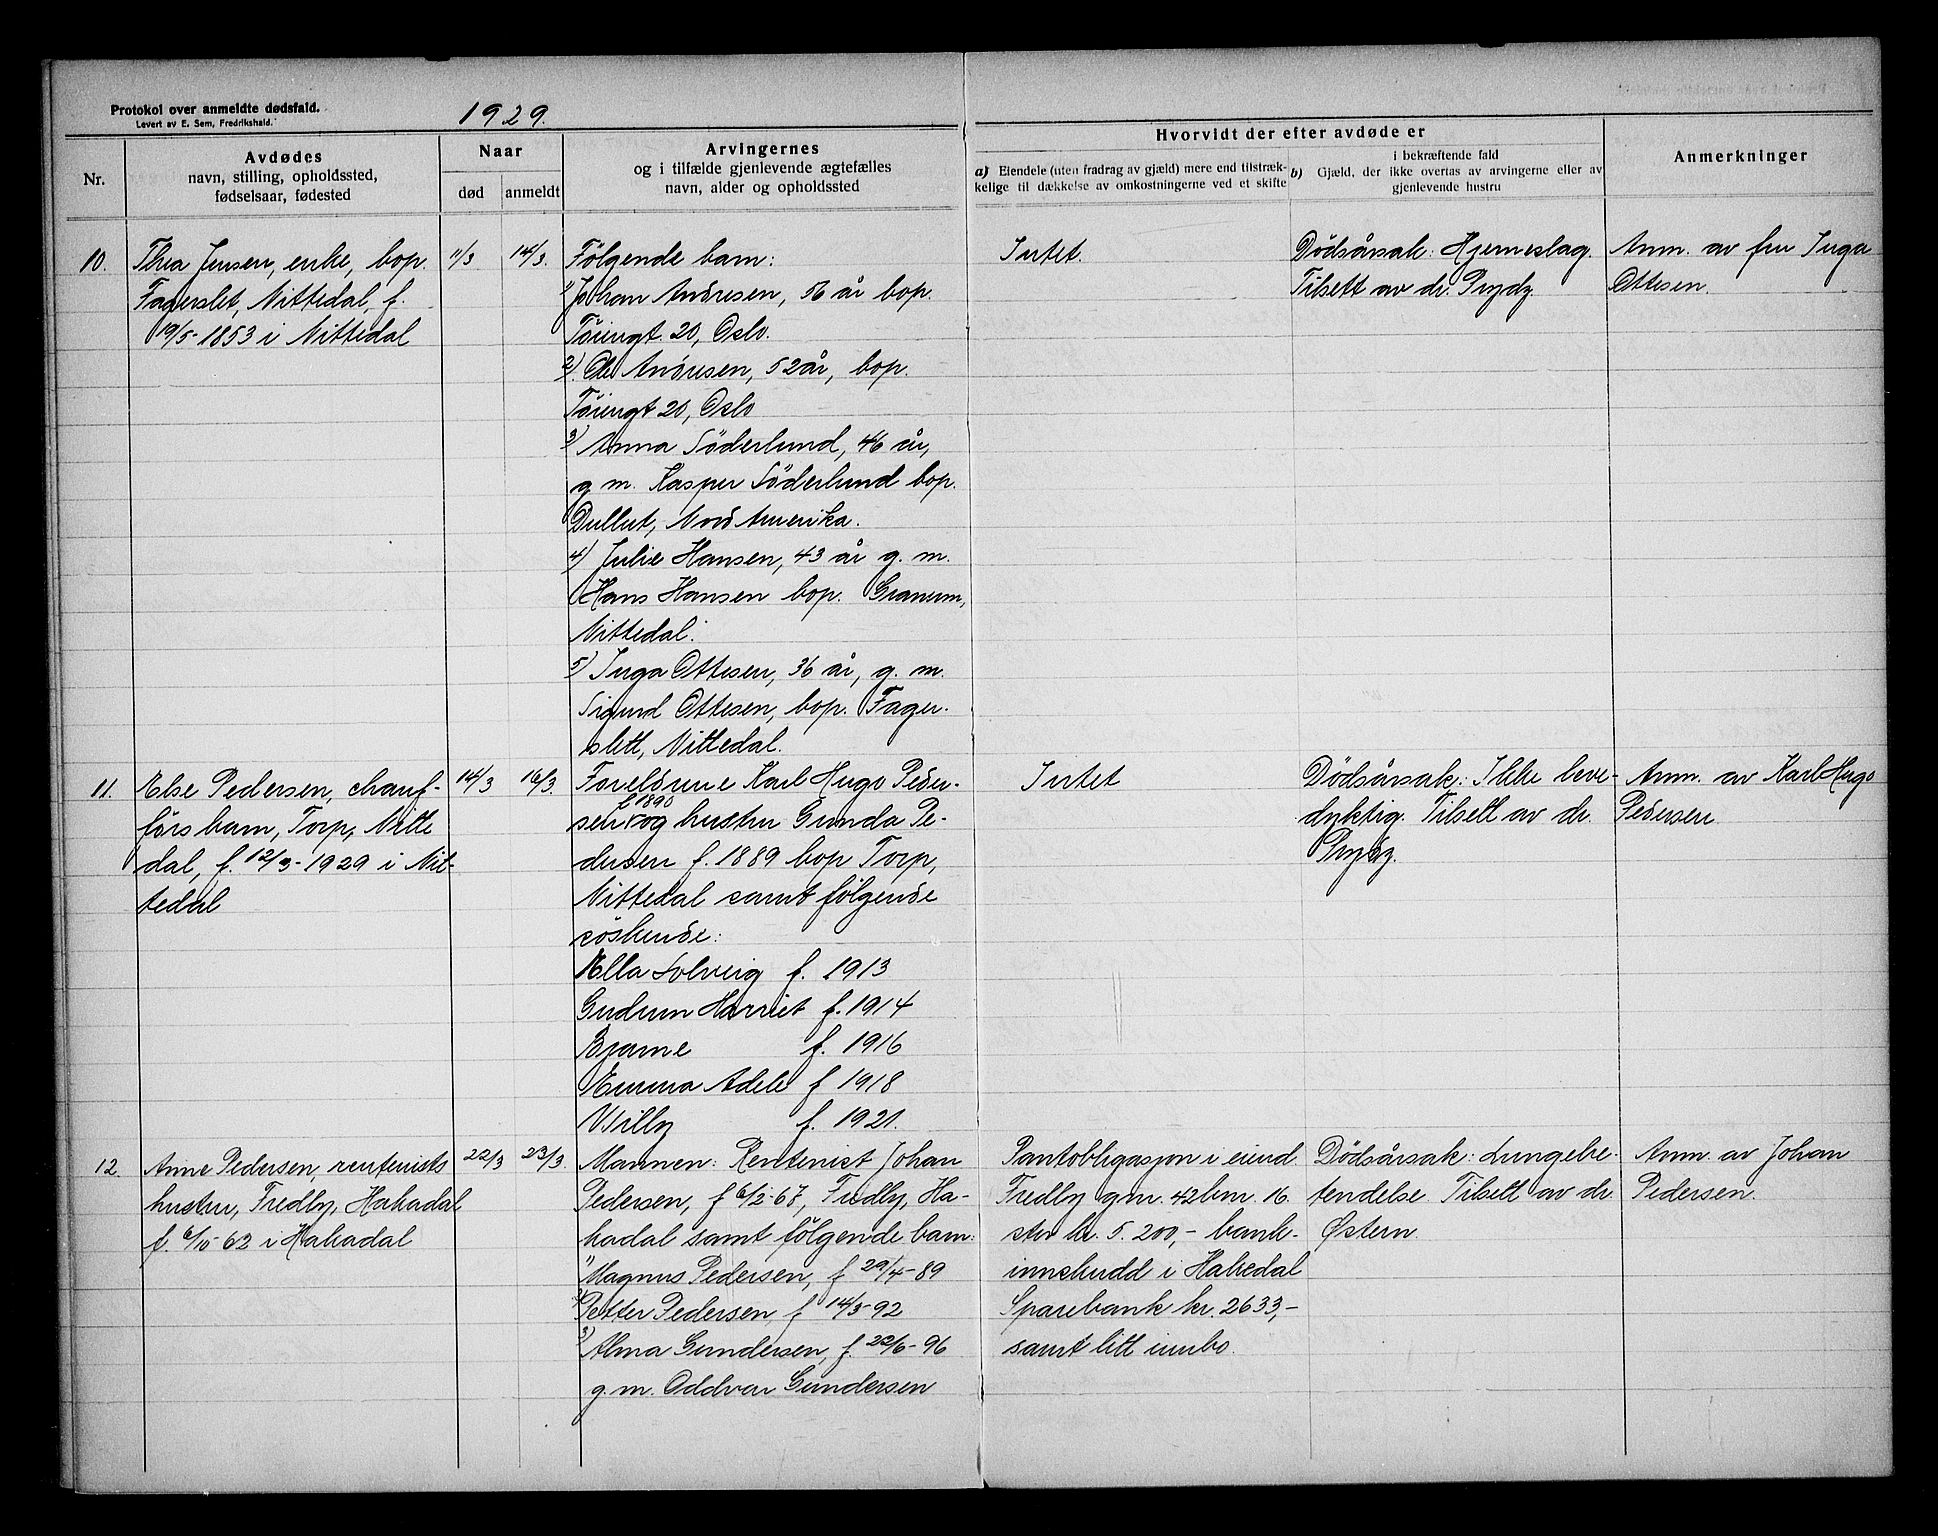 Protokol over anmeldte dødsfald.
Levert av E. Sem, Fredrikshald.
1929.
Nr.
Avdødes
navn, stilling, opholdssted,
fødselsaar, fødested
Naar
død
anmeldt
Arvingernes
og i tilfælde gjenlevende ægtefælles
navn, alder og opholdssted
Hvorvidt der efter avdøde er
a) Eiendele (uten fradrag av gjæld) mere end tilstræk-
kelige til dækkelse av omkostningerne ved et skifte
i bekræftende fald
b) Gjæld, der ikke overtas av arvingerne eller av
gjenlevende hustru
Anmerkninger
10.
Thea Jensen, enke, bop.
Fagerslet, Nittedal, f.
19/5-1853 i Nittedal
11/3
14/3.
Følgende barn:
1) Johan Andresen, 56 år bop.
Töiengt. 20, Oslo.
2). Ole Andresen, 52 år, bop.
Töiengt 20, Oslo
3) Anna Söderlund, 46 år,
g m. Kasper Söderlund bop.
Dullut, Nord Amerika.
4) Julie Hansen, 43 år g. m.
Hans Hansen bop. Granum,
Nittedal.
5) Inga Ottesen, 36 år, g. m.
Sigurd Ottesen, bop. Fager-
slett, Nittedal.
Intet.
Dödsårsak: Hjerneslag.
Tilsett av dr. Prydz.
Anm. av fru Inga
Ottesen.
11.
Else Pedersen, chauf-
förs barn, Torp, Nitte
dal, f. 12/3-1929 i Nit-
tedal
14/3
16/3.
Foreldrene Karl Hugo Peder-
f. 1890
sen og hustru Gunda Pe-
dersen f. 1889 bop Torp,
Nittedal samt følgende
söskende:
Ella Solveig f. 1913
Gudrun Harriet f. 1914
Bjarne f. 1916
Emma Adele f 1918
Willy f. 1921.
Intet
Dödsårsak: Ikke leve-
dyktig. Tilsett av dr.
Prydz.
Anm. av Karl Hugo
Pedersen.
12.
Anne Pedersen, rentenists
hustru, Fredly, Hakadal
f. 6/5-62 i Hakadal
22/3
23/3.
Mannen: Rentenist Johan
Pedersen, f 6/2-67, Fredly, Ha-
kadal samt følgende barn:
1) Magnus Pedersen, f 29/4-89
2) Petter Pedersen, f 14/3-92
3) Alma Gundersen, f. 22/6-96
g. m. Oddvar Gundersen
Pantobligasjon i eiend.
Fredly g.nr. 42 bnr. 16.
stor kr. 5.200,- bank-
innskudd i Hakedal
Sparebank kr. 2633,-
samt litt innbo.
Dödsårsak: Lungebe-
tendelse. Tilsett av dr.
Østern.
Anm. av Johan
Pedersen.